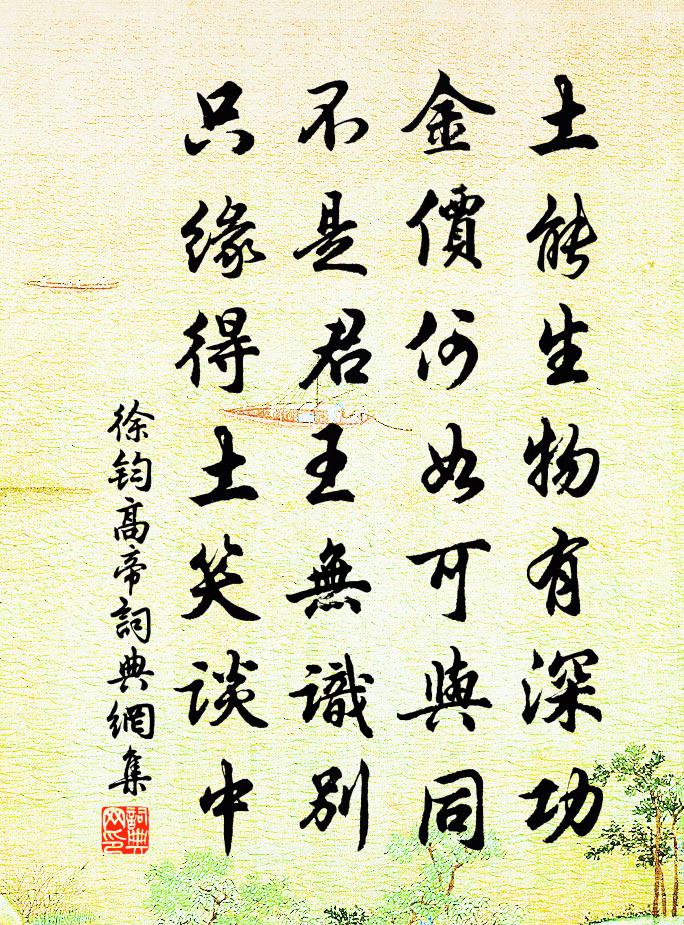 土能生物有深功
金價何如可與同
不是君王無識別
只緣得土笑談中
徐鈞高帝詞典網集
詞典网印